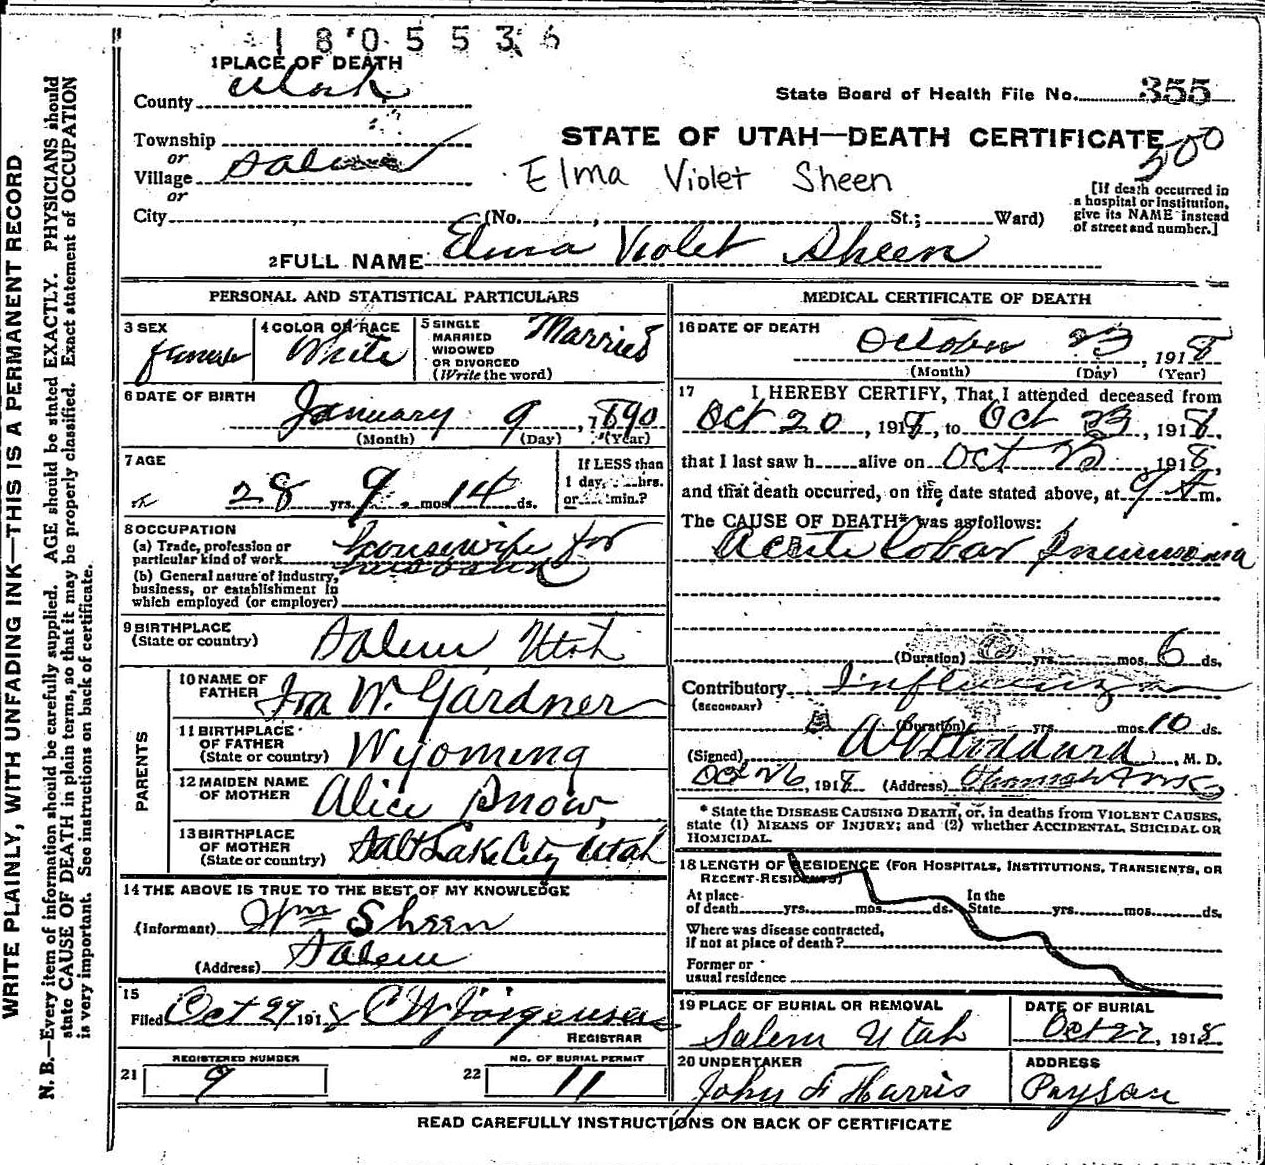 1805536
1 PLACE OF DEATH
County Utah
State Board of Health File No. 355
Township
or
Village Salem
or
City (No. , St.; Ward)
STATE OF UTAH—DEATH CERTIFICATE
500
Elma Violet Sheen
[If death occurred in
a hospital or institution,
give its NAME instead
of street and number.]
2 FULL NAME Elma Violet Sheen
PERSONAL AND STATISTICAL PARTICULARS
3 SEX
female
4 COLOR OR RACE
White
5 SINGLE
MARRIED
WIDOWED
OR DIVORCED
(Write the word)
Married
6 DATE OF BIRTH
January 9, 1890
(Month) (Day) (Year)
7 AGE
28 yrs. 9 mos. 14 ds.
If LESS than
1 day, hrs.
or min.?
8 OCCUPATION
(a) Trade, profession or
particular kind of work
housewife for
husband
(b) General nature of industry,
business, or establishment in
which employed (or employer)
9 BIRTHPLACE
(State or country) Salem Utah
PARENTS
10 NAME OF
FATHER Ira W. Gardner
11 BIRTHPLACE
OF FATHER
(State or country) Wyoming
12 MAIDEN NAME
OF MOTHER Alice Snow,
13 BIRTHPLACE
OF MOTHER
(State or country) Salt Lake City Utah
14 THE ABOVE IS TRUE TO THE BEST OF MY KNOWLEDGE
(Informant) Wm Sheen
(Address) Salem
15
Filed Oct 27 1918 C W Jorgensen
REGISTRAR
21 REGISTERED NUMBER
9
22 NO. OF BURIAL PERMIT
11
MEDICAL CERTIFICATE OF DEATH
16 DATE OF DEATH
October 23, 1918
(Month) (Day) (Year)
17 I HEREBY CERTIFY, That I attended deceased from
Oct 20, 1918, to Oct 23, 1918,
that I last saw h alive on Oct 23, 1918,
and that death occurred, on the date stated above, at 9 A m.
The CAUSE OF DEATH* was as follows:
Acute Lobar Pneumonia
(Duration) yrs. mos. 6 ds.
Contributory Influenza
(SECONDARY)
(Duration) yrs. mos. 10 ds.
(Signed) Stoddard, M. D.
Oct 26, 1918 (Address)
* State the DISEASE CAUSING DEATH, or, in deaths from VIOLENT CAUSES,
state (1) MEANS OF INJURY; and (2) whether ACCIDENTAL, SUICIDAL OR
HOMICIDAL.
18 LENGTH OF RESIDENCE (FOR HOSPITALS, INSTITUTIONS, TRANSIENTS, OR
RECENT RESIDENTS)
At place
of death yrs. mos. ds.
In the
State yrs. mos. ds.
Where was disease contracted,
if not at place of death?
Former or
usual residence
19 PLACE OF BURIAL OR REMOVAL
Salem Utah
DATE OF BURIAL
Oct 27, 1918
20 UNDERTAKER
John F Harris
ADDRESS
Payson
READ CAREFULLY INSTRUCTIONS ON BACK OF CERTIFICATE
WRITE PLAINLY, WITH UNFADING INK—THIS IS A PERMANENT RECORD
N. B.—Every item of information should be carefully supplied. AGE should be stated EXACTLY. PHYSICIANS should
state CAUSE OF DEATH in plain terms, so that it may be properly classified. Exact statement of OCCUPATION
is very important. See instructions on back of certificate.